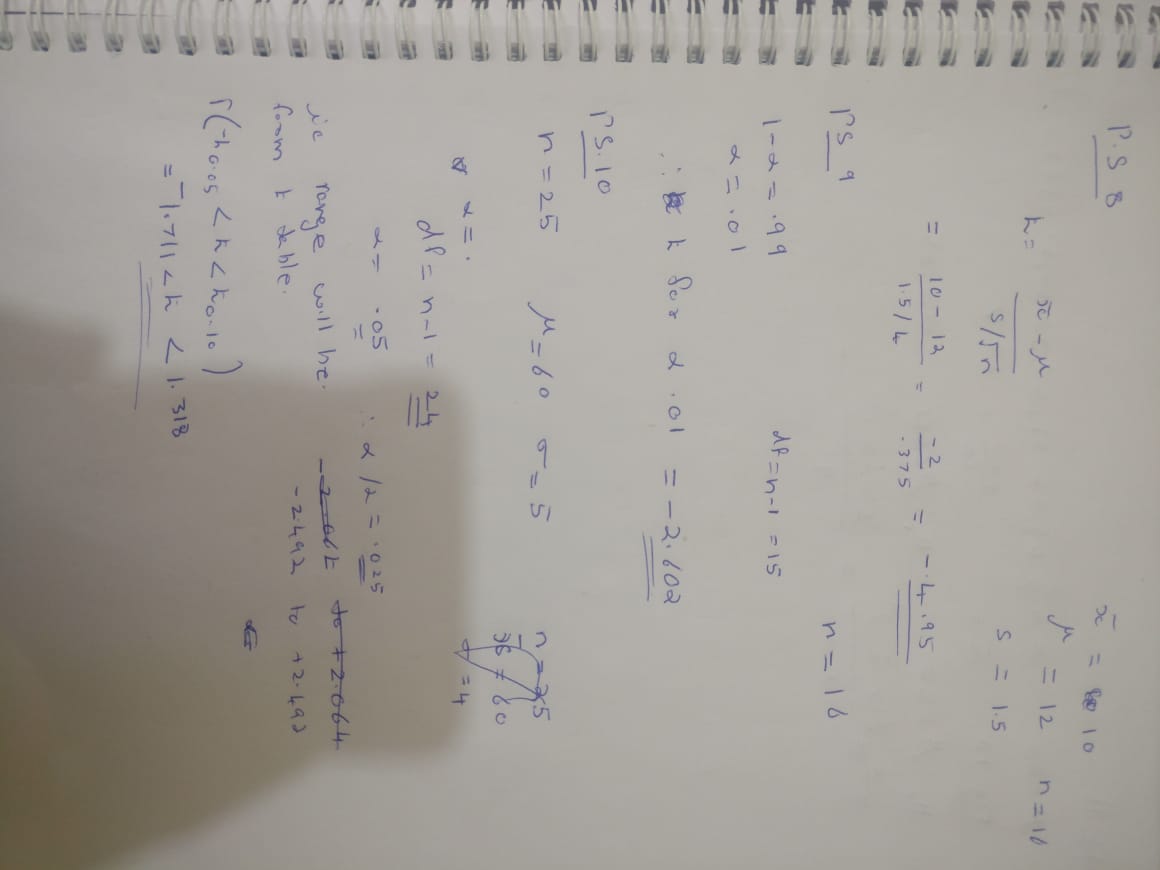 P.S 8
x̄ = 10
μ = 12 n = 16
s = 1.5
t = x̄ - μ / s/√n
= 10 - 12 / 1.5/4 = -2 / .375 = -4.95
PS 9
n = 16
1-α = .99 df = n-1 = 15
α = .01
∴ t for α .01 = -2.602
PS.10
n = 25 μ = 60 σ = 5
n = 25
x̄ = 60
σ = 4
α = .
df = n-1 = 24
α = .05 ∴ α/2 = .025
ie range will be -2.064 to +2.064
from t table. -2.492 to +2.492
P(-t0.05 < t < t0.10)
= -1.711 < t < 1.318